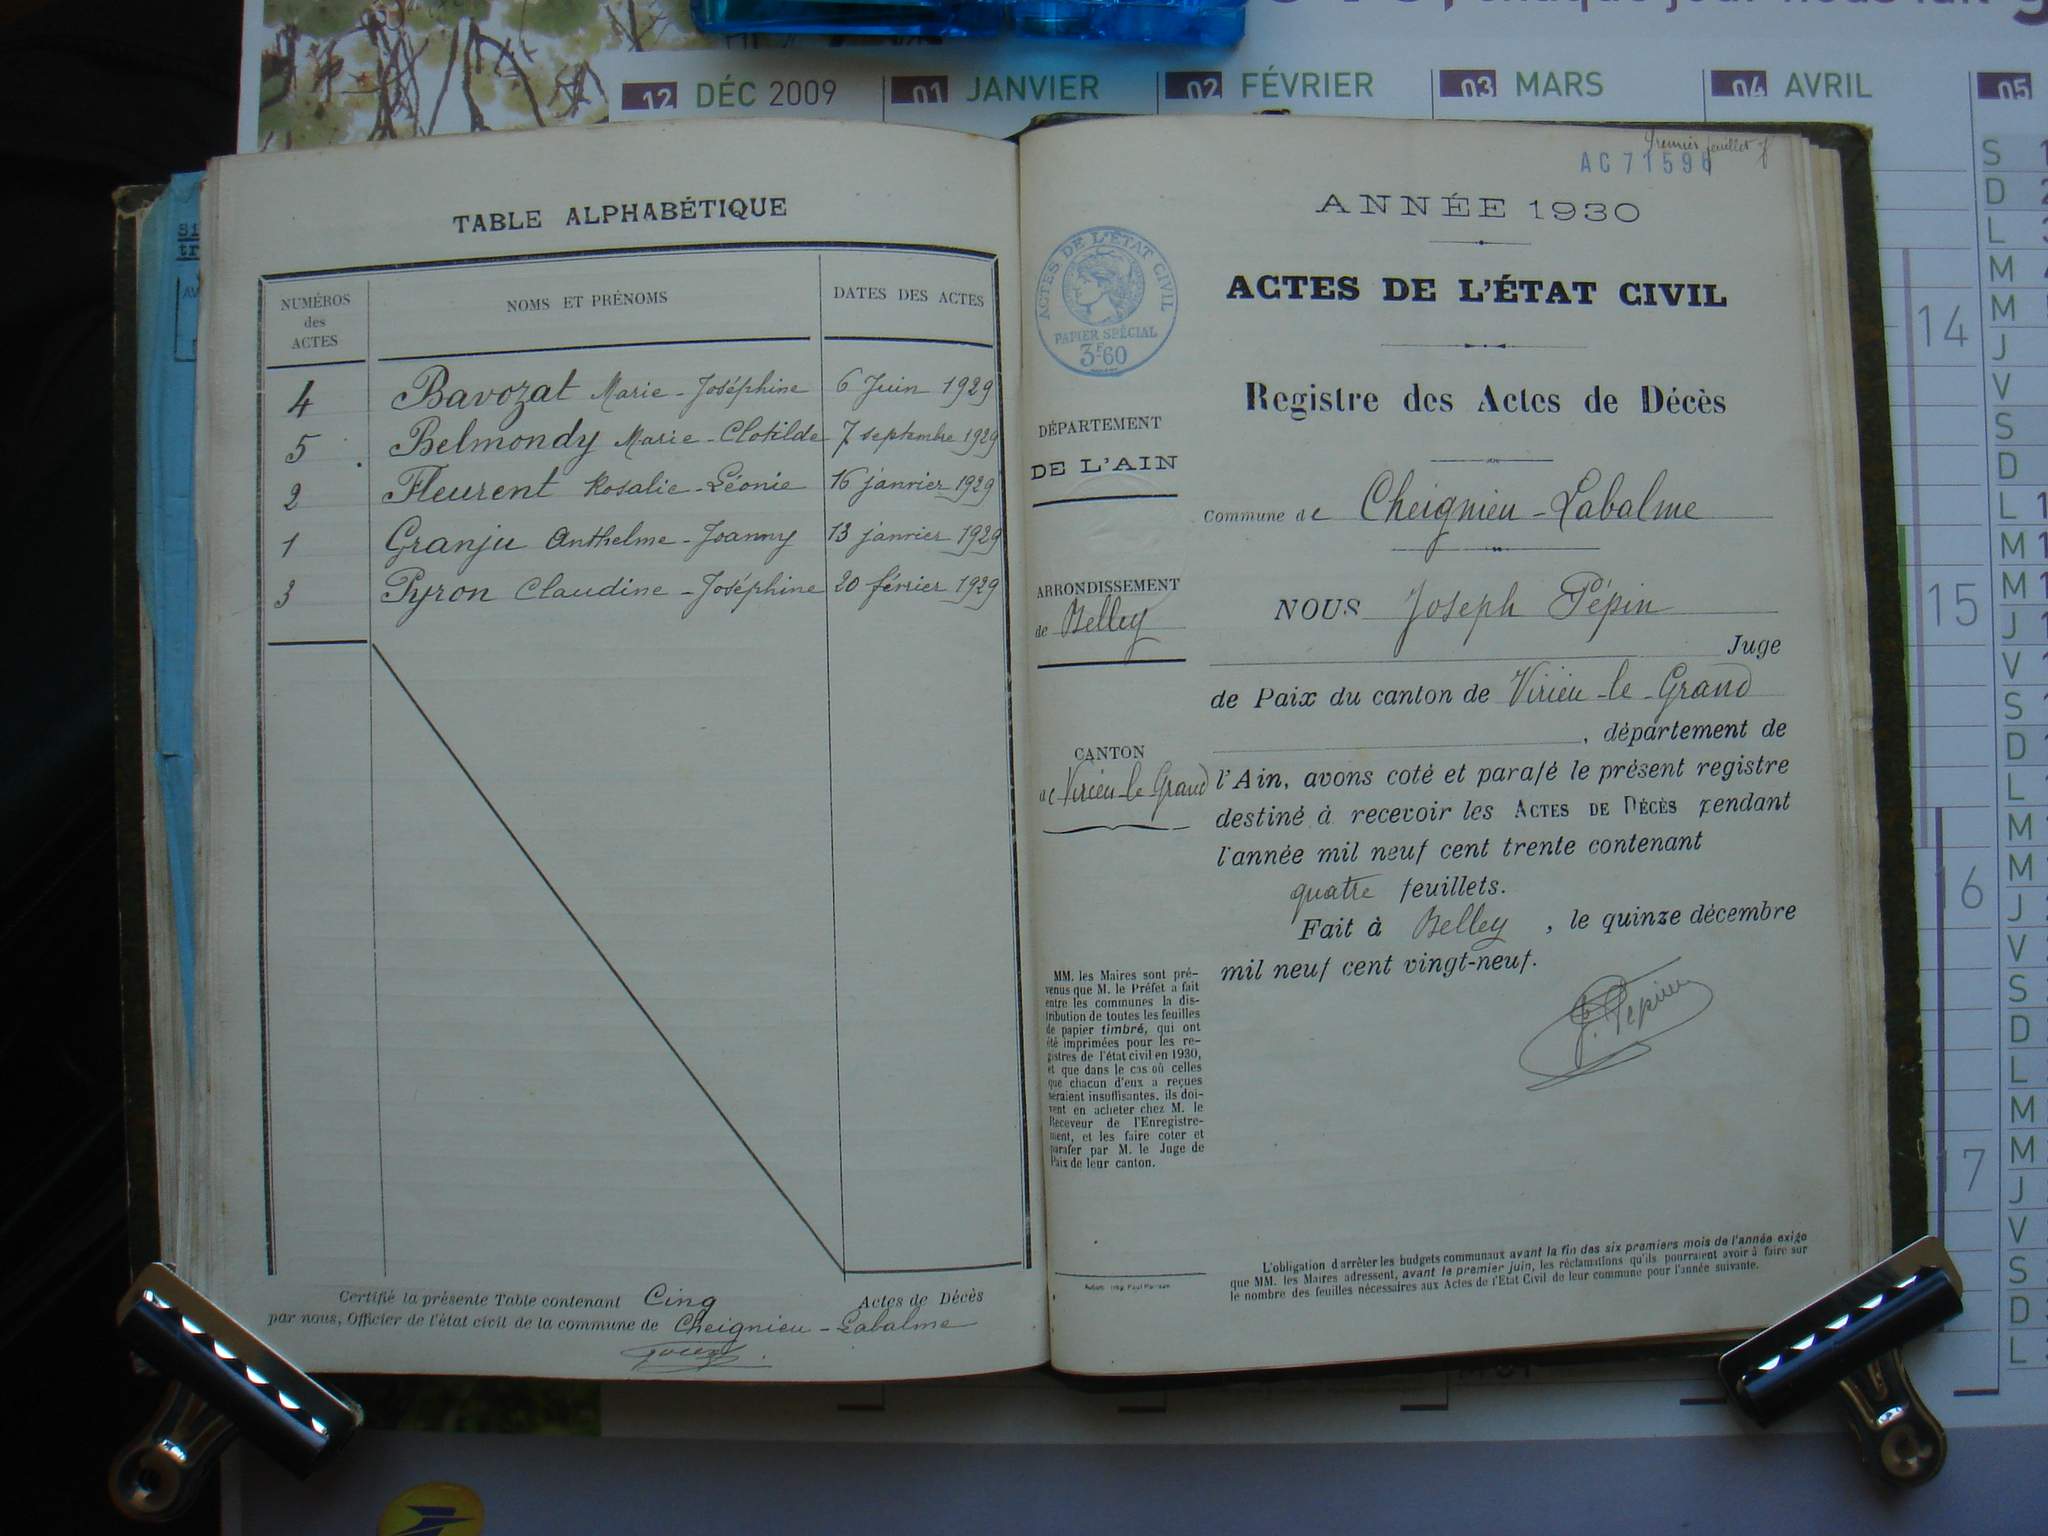 12 DÉC 2009
01 JANVIER
02 FÉVRIER
03 MARS
04 AVRIL
05
TABLE ALPHABÉTIQUE
NUMÉROS des ACTES
NOMS ET PRÉNOMS
DATES DES ACTES
4 Bavozat Marie-Joséphine 6 Juin 1929
5 Belmondy Marie-Clotilde 7 septembre 1929
2 Fleurent Rosalie-Léonie 16 janvier 1929
1 Granju Anthelme-Joanny 13 janvier 1929
3 Pyron Claudine-Joséphine 20 février 1929
Certifié la présente Table contenant Cinq Actes de Décès
par nous, Officier de l'état civil de la commune de Cheignieu-Labalme
Premier feuillet
AC 71596
ANNÉE 1930
ACTES DE L'ÉTAT CIVIL
PAPIER SPÉCIAL
3F60
ACTES DE L'ÉTAT CIVIL
Registre des Actes de Décès
DÉPARTEMENT
DE L'AIN
Commune de Cheignieu-Labalme
ARRONDISSEMENT
de Belley
NOUS Joseph Pépin
Juge
de Paix du canton de Virieu-le-Grand
, département de
CANTON
de Virieu-le-Grand
l'Ain, avons coté et parafé le présent registre
destiné à recevoir les ACTES DE DÉCÈS pendant
l'année mil neuf cent trente contenant
quatre feuillets.
Fait à Belley, le quinze décembre
mil neuf cent vingt-neuf.
J. Pépin
MM. les Maires sont pré-
venus que M. le Préfet a fait
entre les communes la dis-
tribution de toutes les feuilles
de papier timbré, qui ont
été imprimées pour les re-
gistres de l'état civil en 1930,
et que dans le cas où celles
que chacun d'eux a reçues
seraient insuffisantes, ils doi-
vent en acheter chez M. le
Receveur de l'Enregistre-
ment, et les faire coter et
parafer par M. le Juge de
Paix de leur canton.
L'obligation d'arrêter les budgets communaux avant la fin des six premiers mois de l'année exige
que MM. les Maires adressent, avant le premier juin, les réclamations qu'ils pourraient avoir à faire sur
le nombre des feuilles nécessaires aux Actes de l'Etat Civil de leur commune pour l'année suivante.
S
D
L
M
M
14
J
V
S
D
L
M
M
15
J
V
S
D
L
M
M
16
J
V
S
D
L
M
M
17
J
V
S
D
L